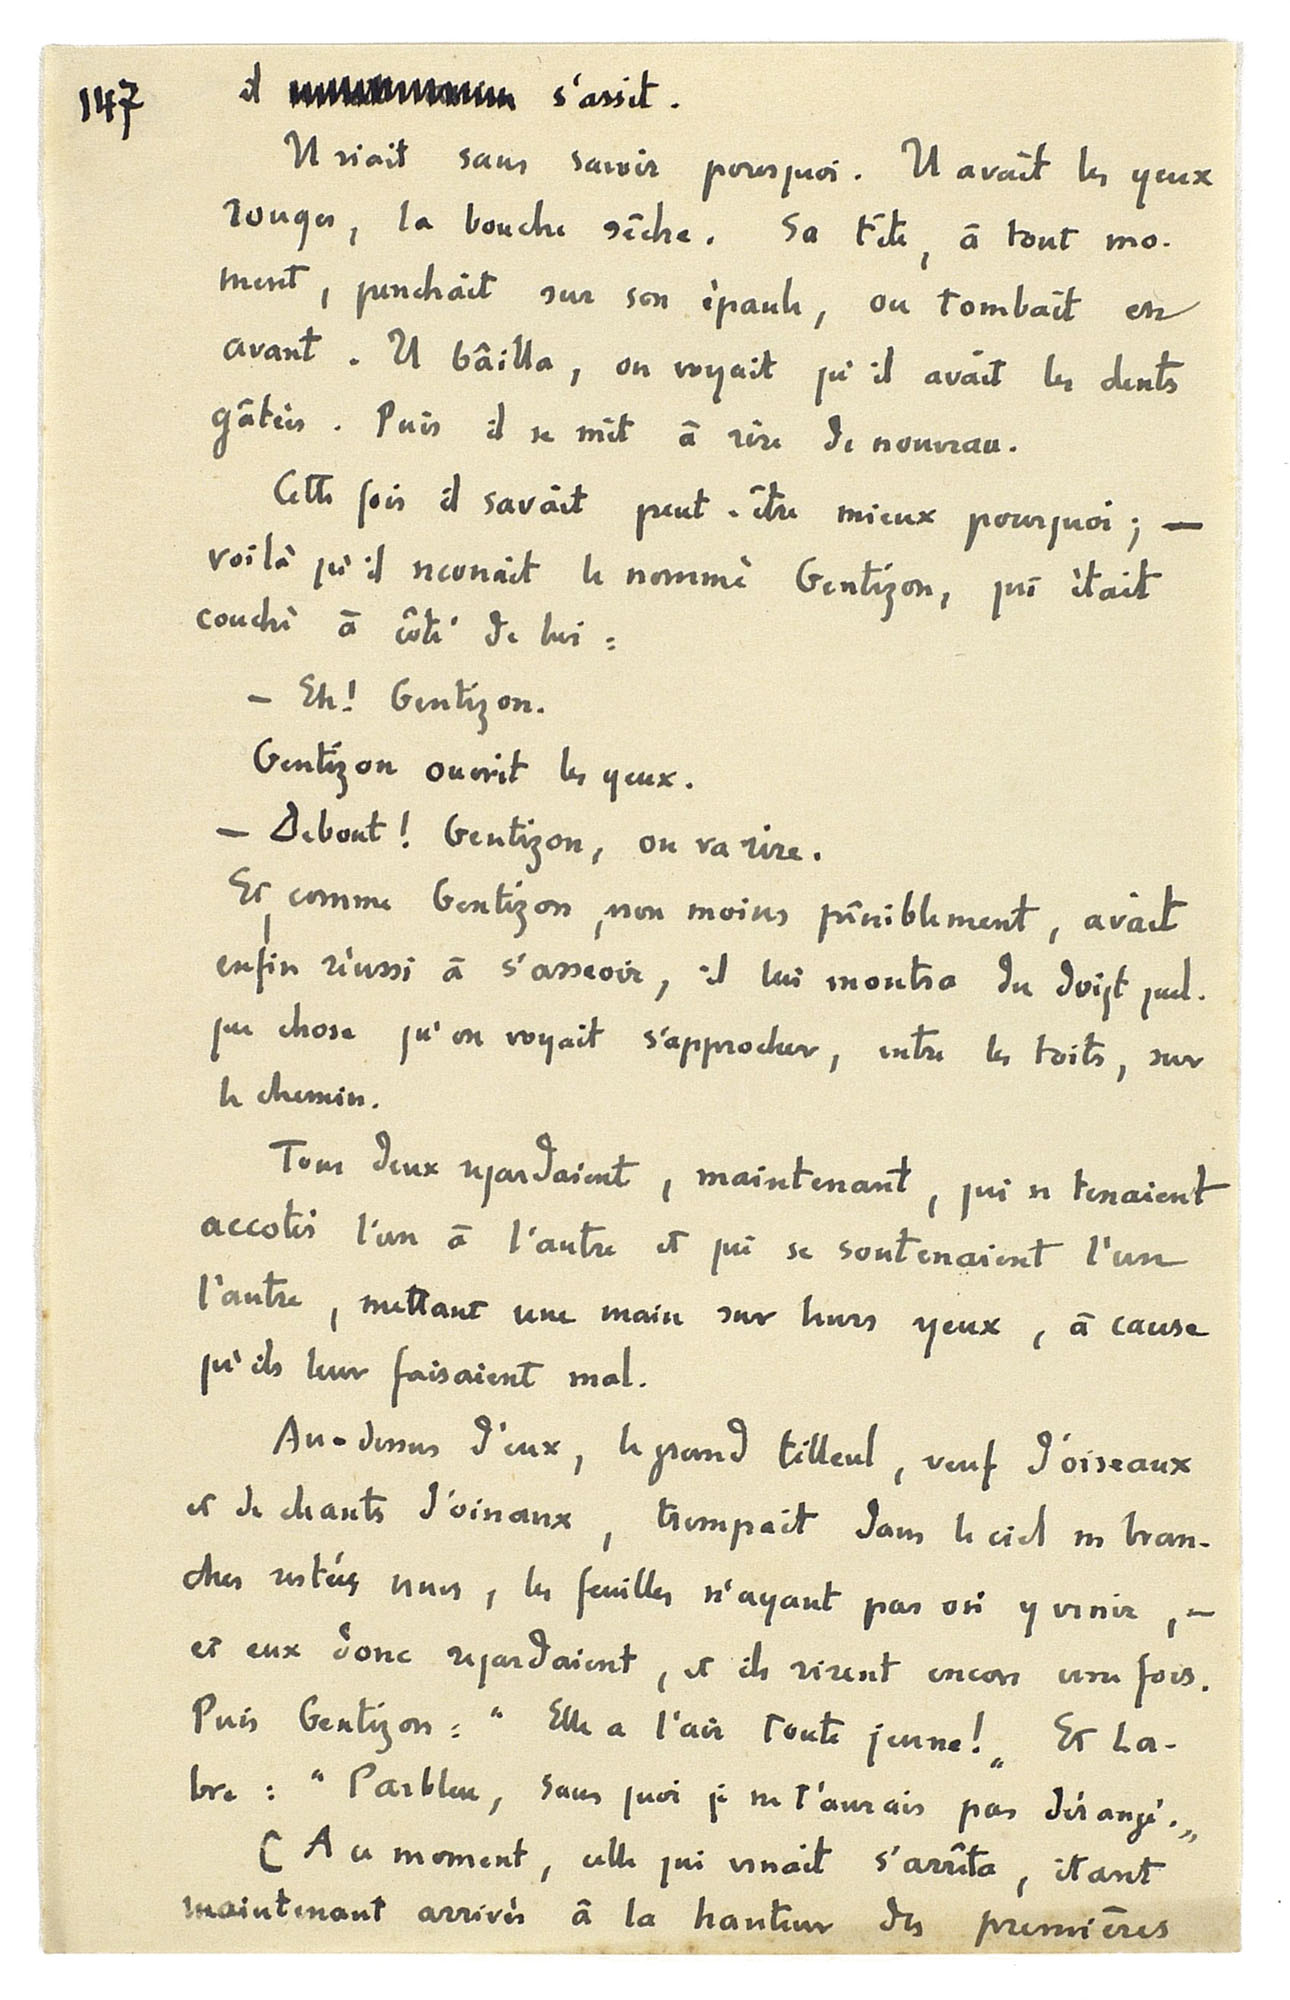 147 il s'assit.
Il riait sans savoir pourquoi. Il avait les yeux
rouges, la bouche sèche. Sa tête, à tout mo-
ment, penchait sur son épaule, ou tombait en
avant. Il bâilla, on voyait qu'il avait les dents
gâtées. Puis il se mit à rire de nouveau.
Cette fois il savait peut-être mieux pourquoi; —
voilà qu'il secouait le nommé Gentizon, qui était
couché à côté de lui :
— Eh! Gentizon.
Gentizon ouvrit les yeux.
— Debout! Gentizon, on va rire.
Et comme Gentizon, non moins péniblement, avait
enfin réussi à s'asseoir, il lui montra du doigt quel-
que chose qu'on voyait s'approcher, entre les toits, sur
le chemin.
Tous deux regardaient, maintenant, qui se tenaient
accotés l'un à l'autre et qui se soutenaient l'un
l'autre, mettant une main sur leurs yeux, à cause
qu'ils leur faisaient mal.
Au-dessus d'eux, le grand tilleul, veuf d'oiseaux
et de chants d'oiseaux, trempait dans le ciel ses bran-
ches restées nues, les feuilles n'ayant pas osé y venir, —
et eux donc regardaient, et ils rirent encore une fois.
Puis Gentizon : " Elle a l'air toute jeune! „ Et La-
bre : " Parbleu, sans quoi je ne t'aurais pas dérangé. „
( A ce moment, celle qui venait s'arrêta, étant
maintenant arrivée à la hauteur des premières